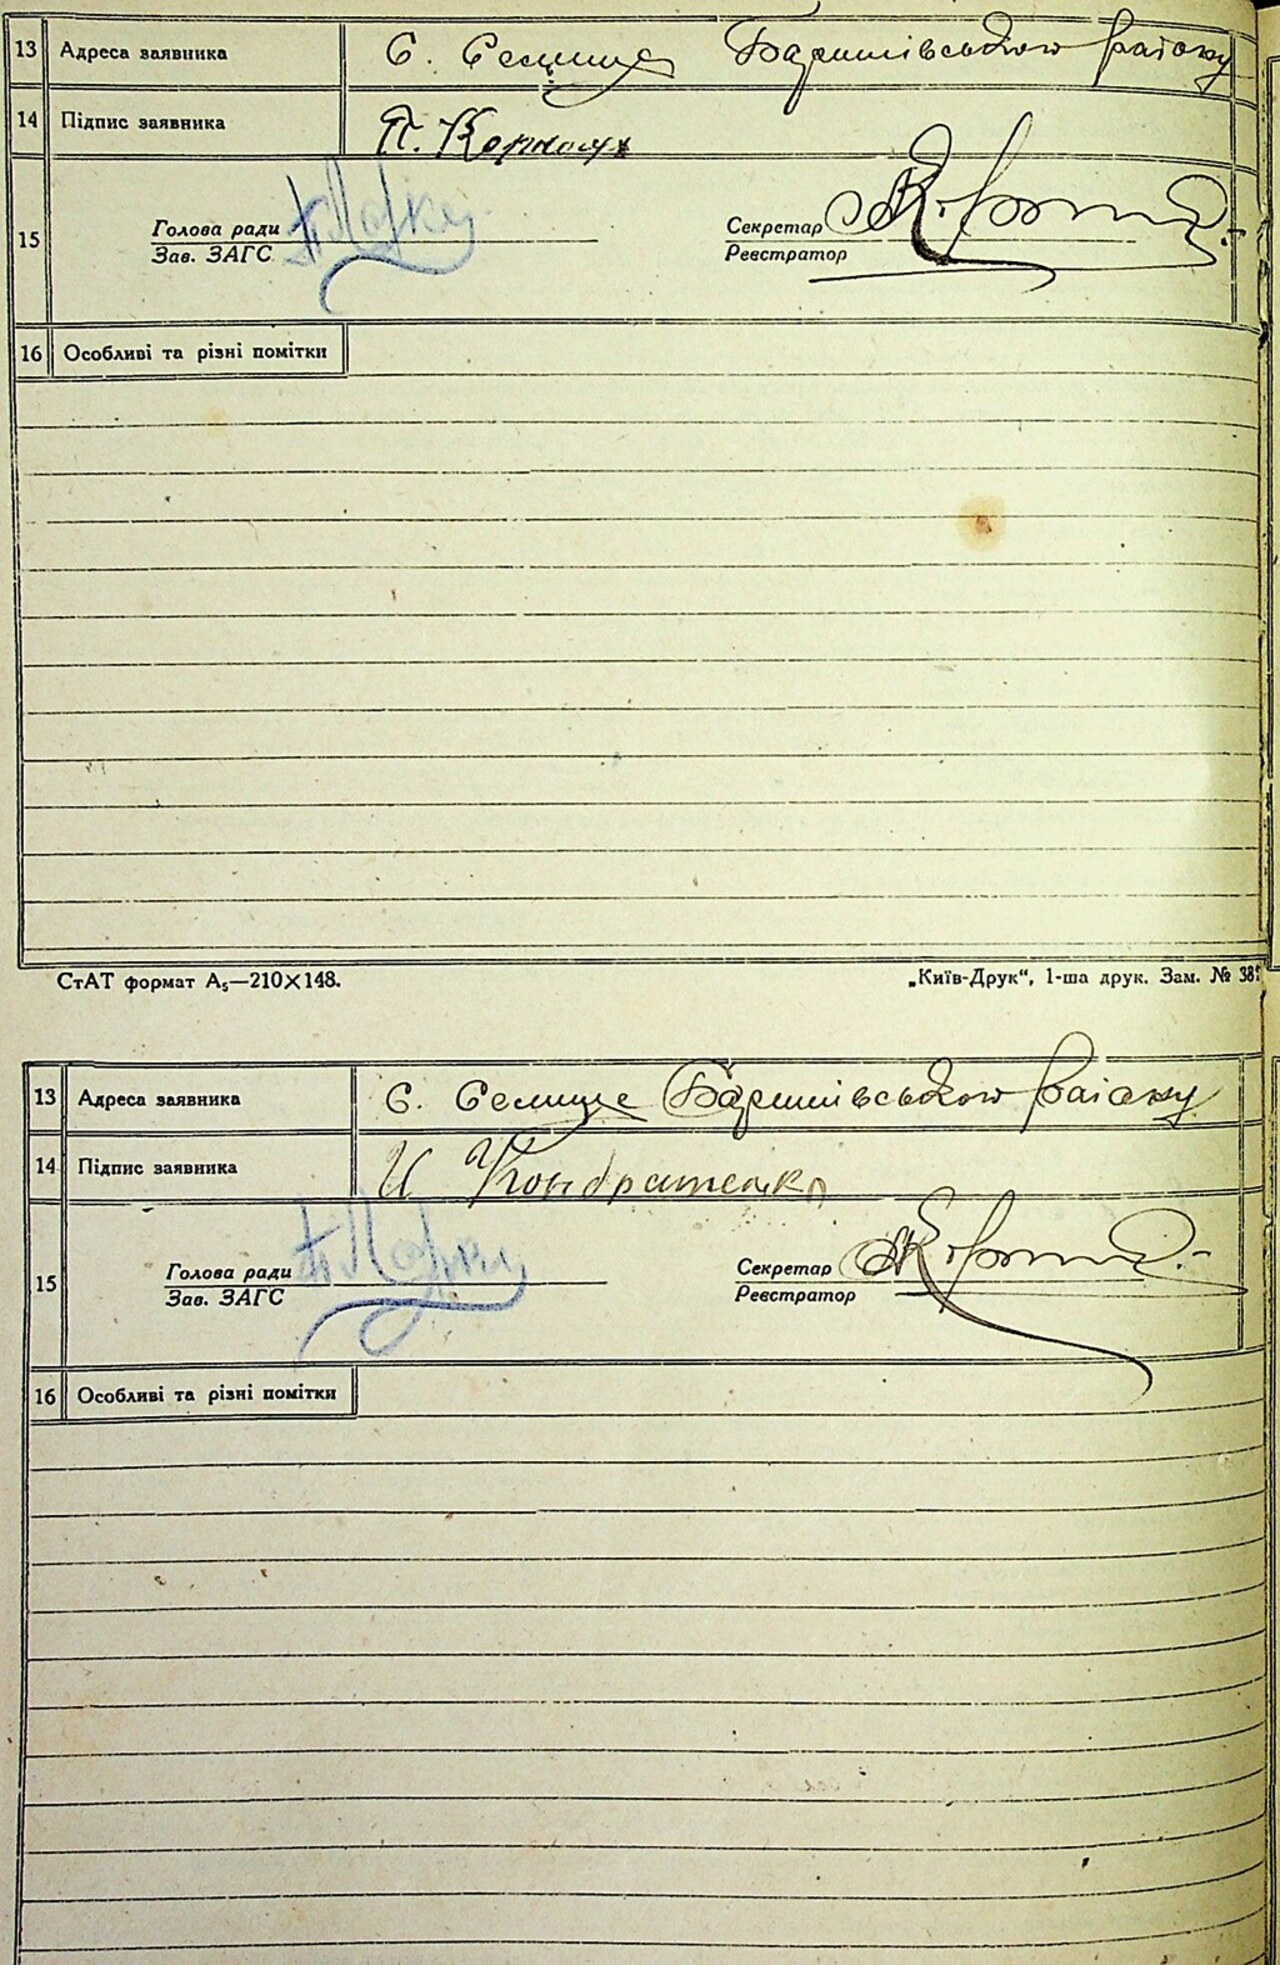 13 Адреса заявника С. Селище Баришівського району
14 Підпис заявника П. Корнюх
15 Голова ради Секретар
Зав. ЗАГС Реєстратор
16 Особливі та різні помітки
СтАТ формат А₅—210×148. „Київ-Друк“, 1-ша друк. Зам. № 38
13 Адреса заявника С. Селище Баришівського району
14 Підпис заявника И Кондратенко
15 Голова ради Секретар
Зав. ЗАГС Реєстратор
16 Особливі та різні помітки